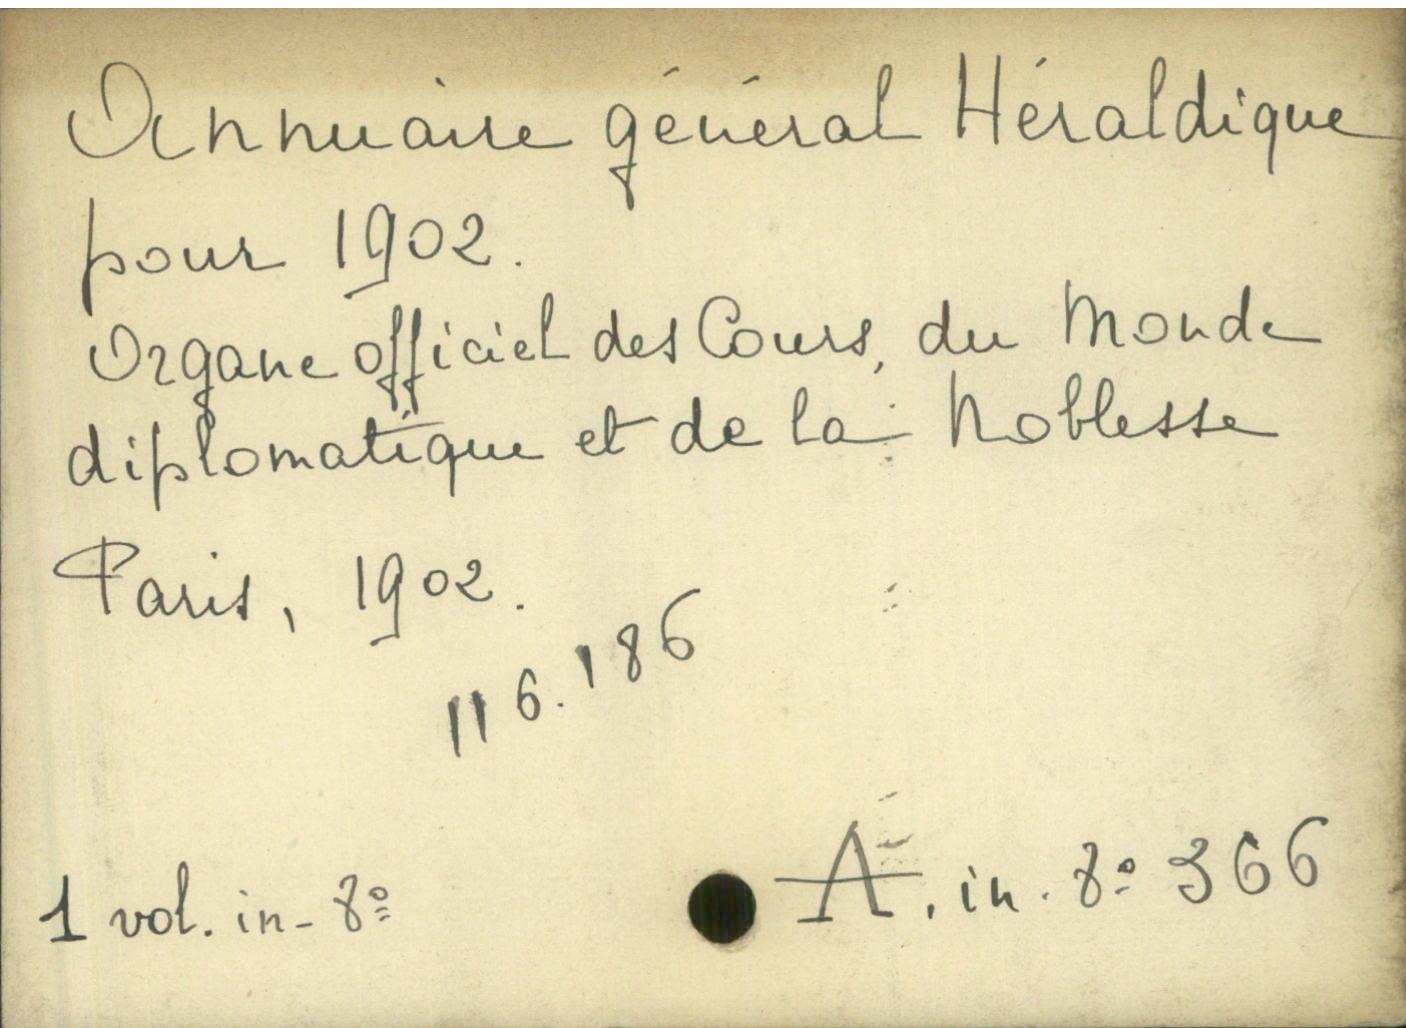 Annuaire général Héraldique
pour 1902.
Organe officiel des Cours, du Monde
diplomatique et de la Noblesse
Paris, 1902.
116.186
1 vol. in-8º
A. in. 8º 366